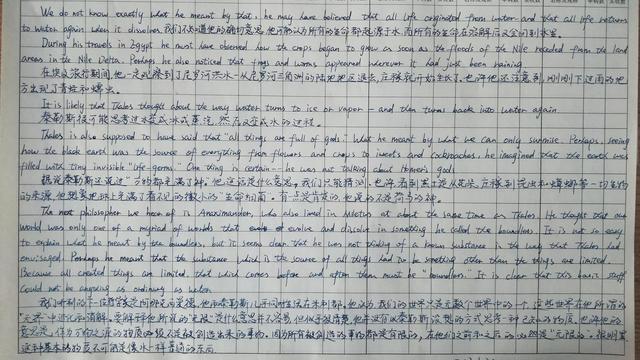 We do not know exactly what he meant by that, he may have believed that all life originated from water and that all life returns
to water again when it dissolves. 我们不知道他的确切意思,他可能认为所有的生命都起源于水,而所有的生命在溶解后又会回到水里。
During his travels in Egypt he must have observed how the crops began to grow as soon as the floods of the Nile receded from the land
areas in the Nile Delta. Perhaps he also noticed that frogs and worms appeared wherever it had just been raining.
在埃及旅行期间,他一定观察到了尼罗河洪水一从尼罗河三角洲的陆地地区退去,庄稼就开始生长了,也许他还注意到,刚刚下过雨的地
方出现了青蛙和蠕虫。
It is likely that Thales thought about the way water turns to ice or vapor - and then turns back into water again
泰勒斯很可能思考过水变成冰或蒸汽,然后又变成水的过程。
Thales is also supposed to have said that "all things are full of gods." What he meant by what we can only surmise. Perhaps, seeing
how the black earth was the source of everything from flowers and crops to insects and cockroaches, he imagined that the earth was
filled with tiny invisible "life-germs". One thing is certain - he was not talking about Homer's gods
据说泰勒斯还说过"万物都充满了神。"他这话是什么意思,我们只能猜测。也许看到黑土是从花朵、庄稼到昆虫和蟑螂等一切生物
的来源,他想象地球上充满了看不见的微小的"生命细菌"。有一点是肯定的,他说的不是荷马的神。
The next philosopher we hear of is Anaximander, who also lived in Miletus at about the same time as Thales. He thought that our
world was only one of a myriad of worlds that evolve and dissolve in something he called the boundless. It is not so easy
to explain what he meant by the boundless, but it seems clear that he was not thinking of a known substance in the way that Thales had
envisaged. Perhaps he meant that the substance which is the source of all things had to be something other than the things are limited.
Because all created things are limited, that which comes before and after them must be "boundless." It is clear that this basic stuff
could not be anything as ordinary as water.
我们听到的下一位哲学家是阿那克西曼德,他和泰勒斯几乎同时生活在米利都。他认为,我们的世界只是无数个世界中的一个,这些世界在他所谓的
无限的". 很明显
这种基本的物质不可能是像水一样普通的东西